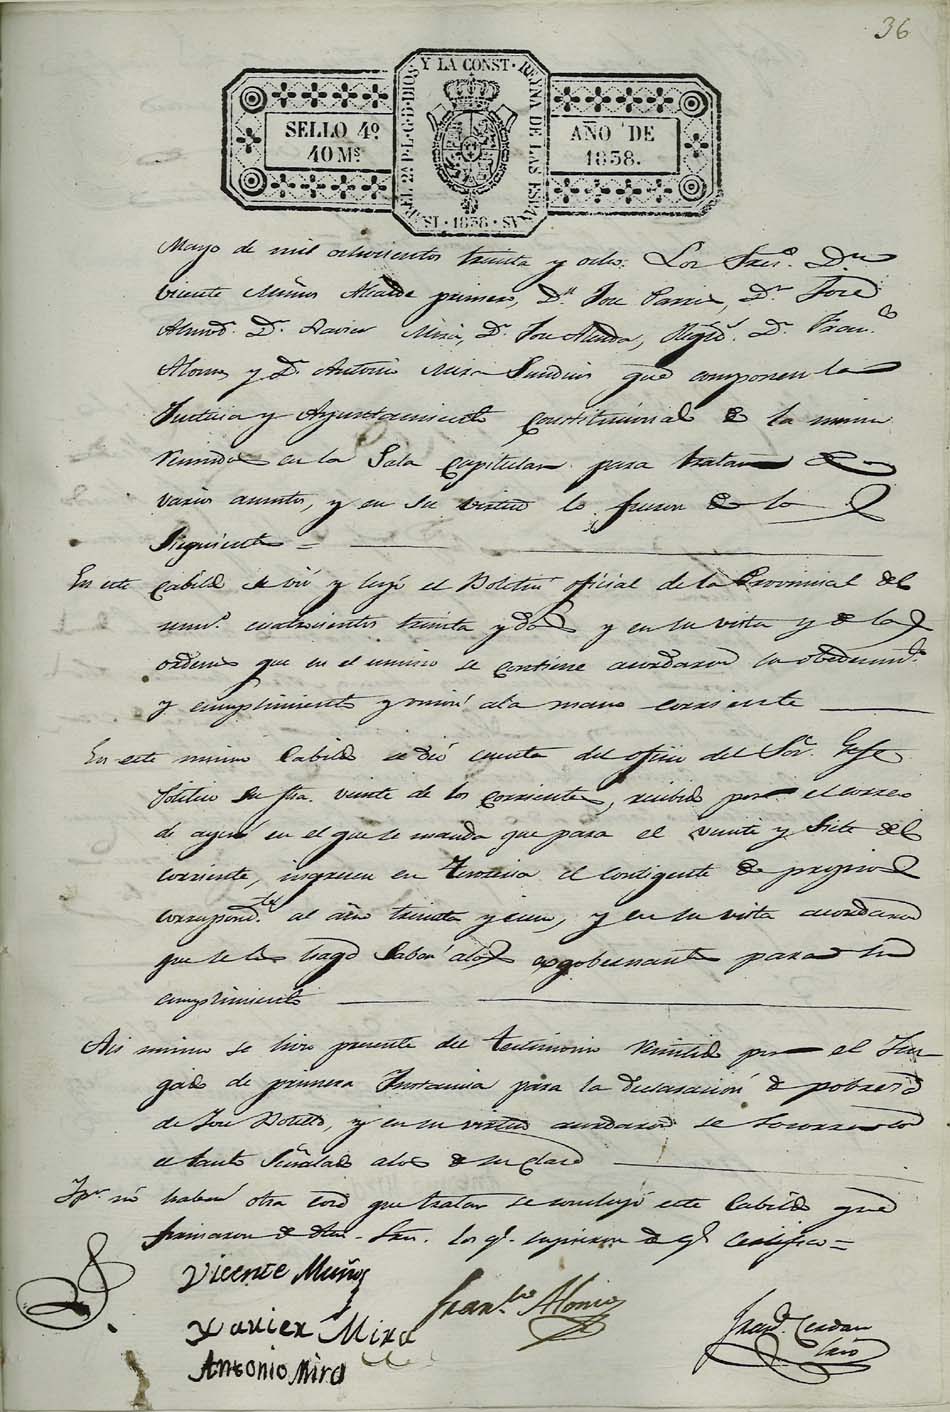 36
ISABEL 2A P.L.G.D.DIOS Y LA CONST. REYNA DE LAS ESPAÑAS. 1838
SELLO 4º
40 Ms
AÑO DE
1838.
Mayo de mil ochocientos treinta y ocho. Los Sres. Dn
Vicente Muños Alcalde primero, Dn. Jose Dn. José
Dn. Xavier Mira, Dn. Jose Regid. Dn. Fran.co
Alonso y Dn. Antonio Mira Sindico que componen la
Justicia y Ayuntamiento Constitucional de la misma
reunidos en la Sala Capitular para tratar de
varios asuntos, y en su virtud lo hicieron de lo
siguiente =
En este Cabildo se vió y leyó el Boletin oficial de la Provincia del
num.o cuatrocientos treinta y dos y en su vista y de las
ordenes que en el mismo se contiene acordaron su obedecim.to
y cumplimiento y union a la mano corriente
En este mismo Cabildo se dió cuenta del oficio del Sor. Gefe
Politico su fha. veinte de los corrientes, recibido por el correo
de ayer en el que se manda que para el veinte y siete del
corriente, ingresen en Tesoreria el contigente de propios
correspond.te al año treinta y cinco, y en su vista acordaron
que se les haga saber a los exgobernantes para su
cumplimiento
Asi mismo se hizo presente del testimonio remitido por el Juz-
gado de primera Instancia para la declaracion de pobreza
de Jose Botella, y en su virtud acordaron se socorra con
el tanto señalado a los de su clase
Y por no haber otra cosa que tratar se concluyó este Cabildo que
firmaron de dhos. Sres. los q.e supieron de q.e Certifico =
Vicente Muños
Xavier Mira
Antonio Mira
Fran.co Alonso
Fran.co Cerdan
Srio